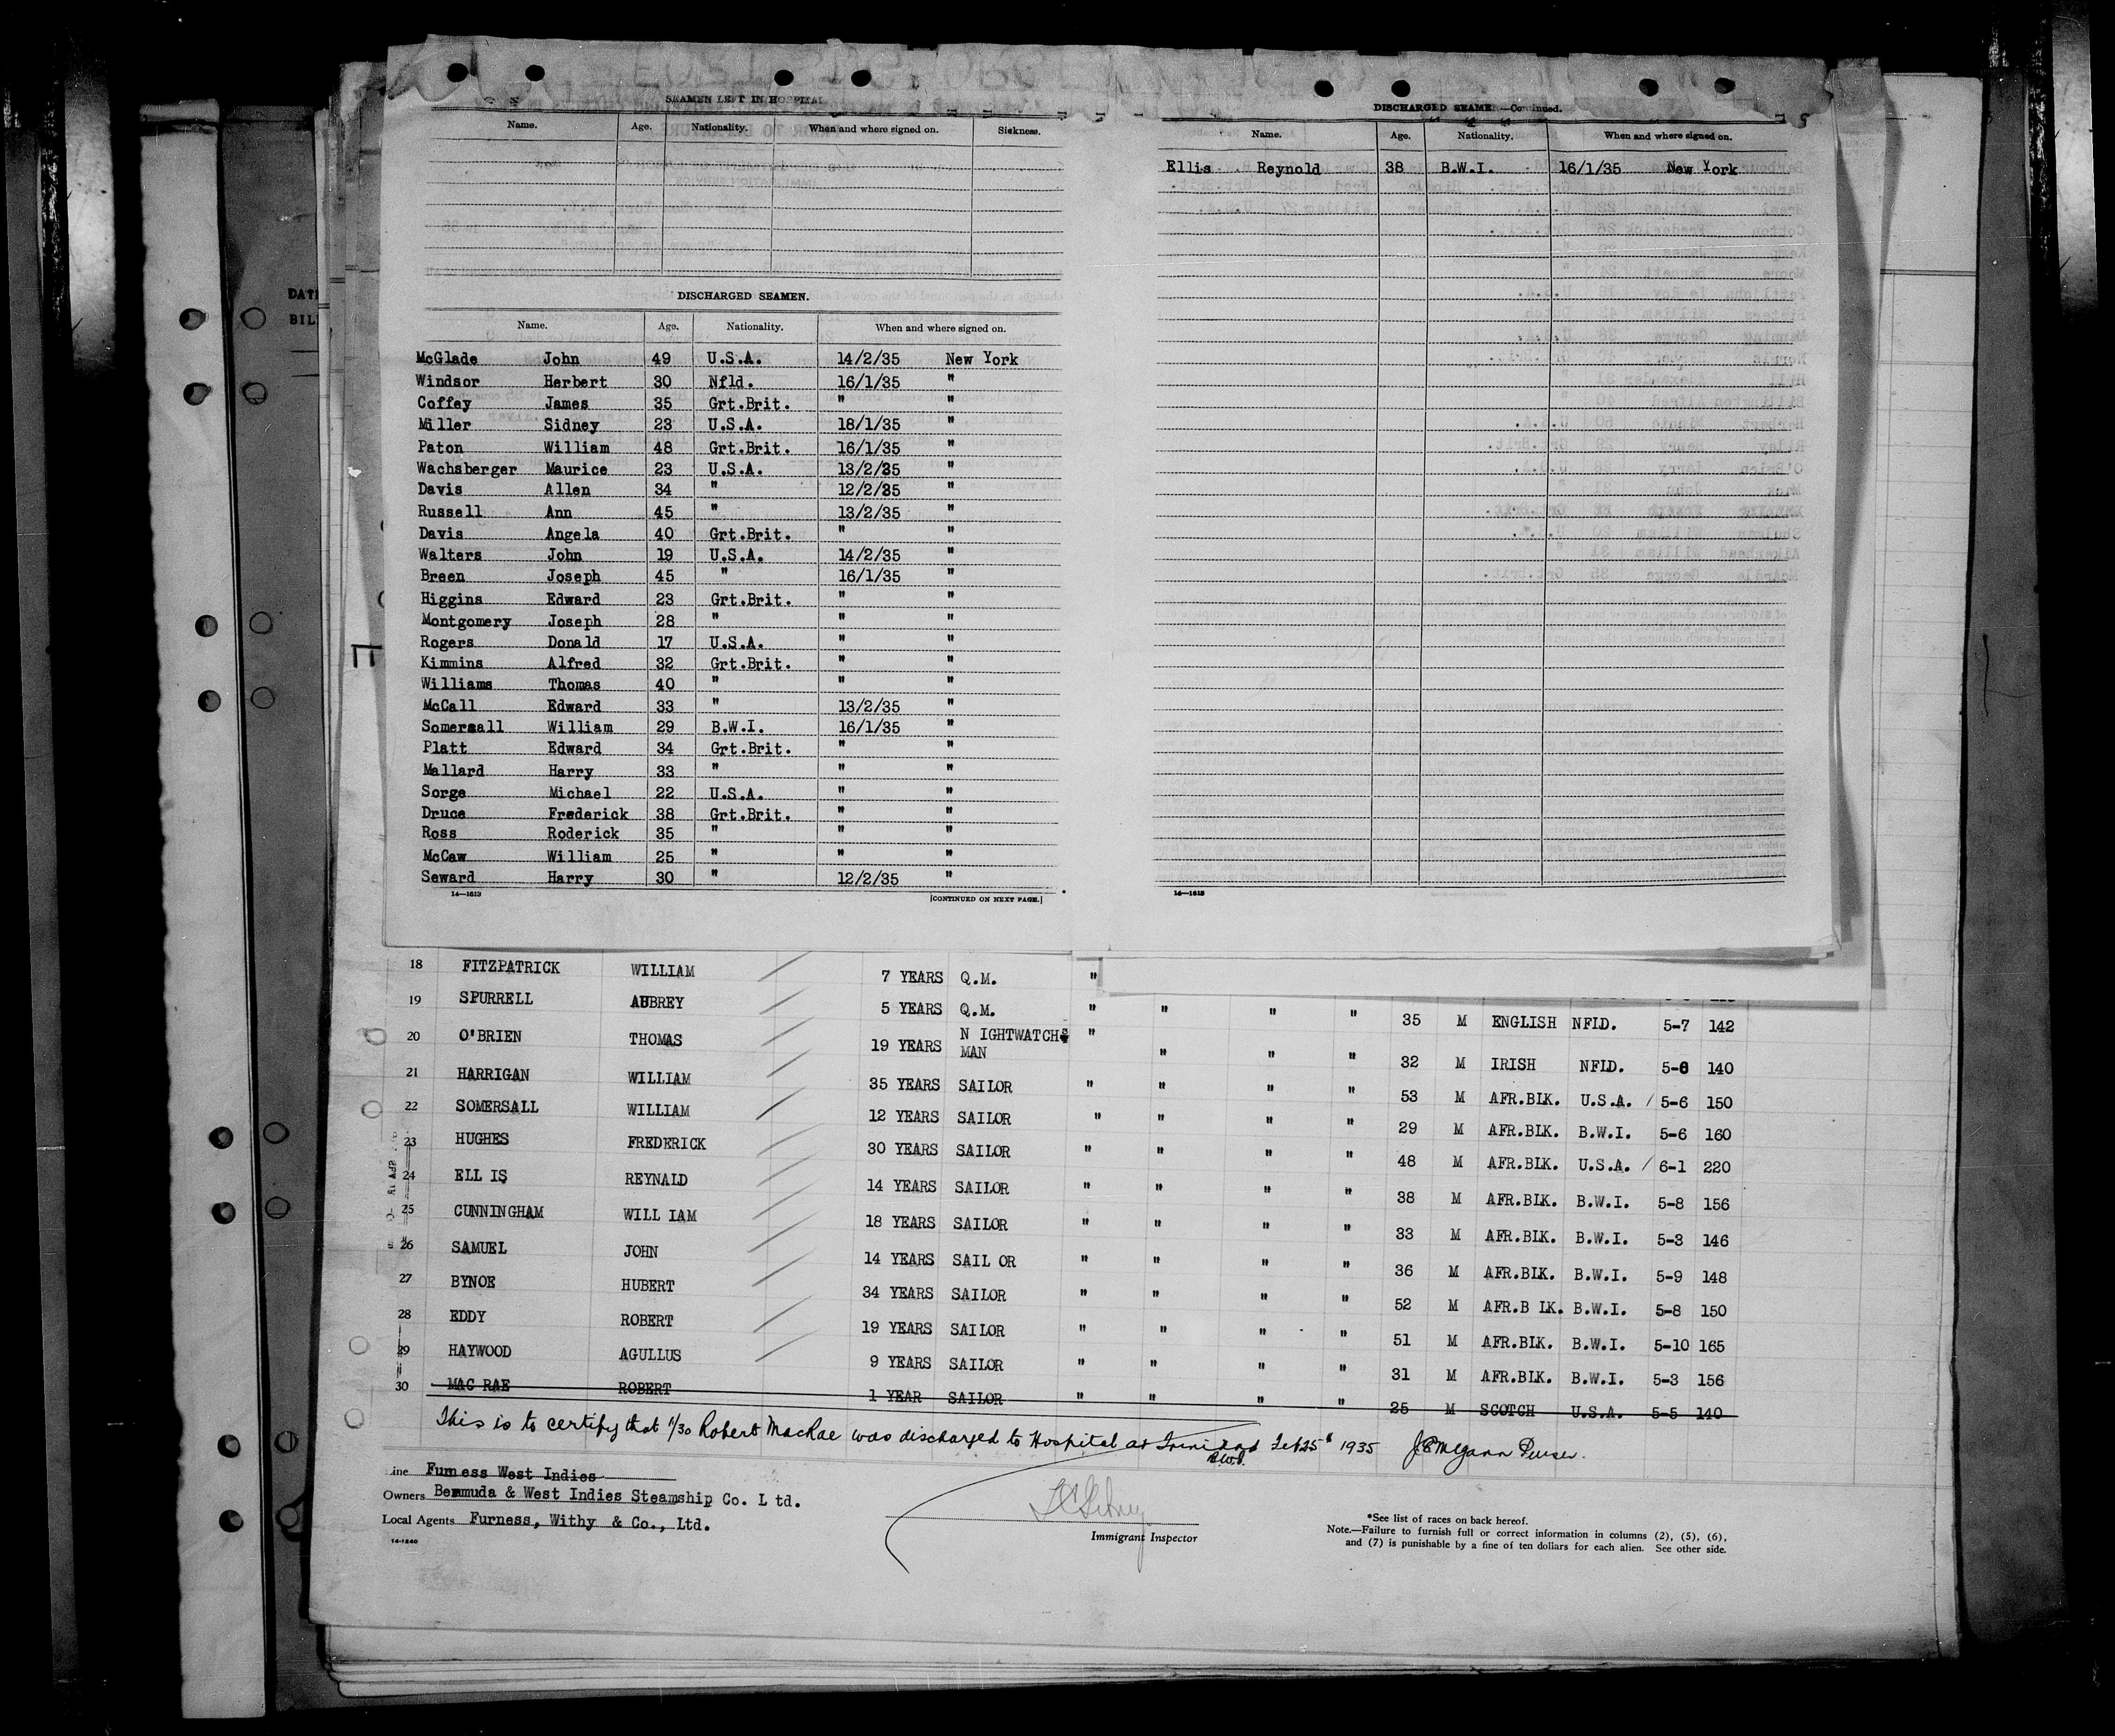 SEAMEN LEFT IN HOSPITAL
Name. Age. Nationality. When and where signed on. Sickness.
DISCHARGED SEAMEN.
Name. Age. Nationality. When and where signed on.
McGlade John 49 U.S.A. 14/2/35 New York
Windsor Herbert 30 Nfld. 16/1/35 "
Coffey James 35 Grt.Brit. " "
Miller Sidney 23 U.S.A. 18/1/35 "
Paton William 48 Grt.Brit. 16/1/35 "
Wachsberger Maurice 23 U.S.A. 13/2/35 "
Davis Allen 34 " 12/2/35 "
Russell Ann 45 " 13/2/35 "
Davis Angela 40 Grt.Brit. " "
Walters John 19 U.S.A. 14/2/35 "
Breen Joseph 45 " 16/1/35 "
Higgins Edward 23 Grt.Brit. " "
Montgomery Joseph 28 " " "
Rogers Donald 17 U.S.A. " "
Kimmins Alfred 32 Grt.Brit. " "
Williams Thomas 40 " " "
McCall Edward 33 " 13/2/35 "
Somersall William 29 B.W.I. 16/1/35 "
Platt Edward 34 Grt.Brit. " "
Mallard Harry 33 " " "
Sorge Michael 22 U.S.A. " "
Druce Frederick 38 Grt.Brit. " "
Ross Roderick 35 " " "
McCaw William 25 " " "
Seward Harry 30 " 12/2/35 "
14—1613 [CONTINUED ON NEXT PAGE.]
DISCHARGED SEAMEN—Continued.
Name. Age. Nationality. When and where signed on.
Ellis Reynold 38 B.W.I. 16/1/35 New York
14—1613
DATE
BILL
18 FITZPATRICK WILLIAM 7 YEARS Q.M. "
19 SPURRELL AUBREY 5 YEARS Q.M. " " " " 35 M ENGLISH NFLD. 5-7 142
20 O'BRIEN THOMAS 19 YEARS N IGHTWATCH-MAN " " " " 32 M IRISH NFLD. 5-8 140
21 HARRIGAN WILLIAM 35 YEARS SAILOR " " " " 53 M AFR.BLK. U.S.A. / 5-6 150
22 SOMERSALL WILLIAM 12 YEARS SAILOR " " " " 29 M AFR.BLK. B.W.I. 5-6 160
23 HUGHES FREDERICK 30 YEARS SAILOR " " " " 48 M AFR.BLK. U.S.A. / 6-1 220
24 ELL IS REYNALD 14 YEARS SAILOR " " " " 38 M AFR.BLK. B.W.I. 5-8 156
25 CUNNINGHAM WILL IAM 18 YEARS SAILOR " " " " 33 M AFR.BLK. B.W.I. 5-3 146
26 SAMUEL JOHN 14 YEARS SAIL OR " " " " 36 M AFR.BLK. B.W.I. 5-9 148
27 BYNOE HUBERT 34 YEARS SAILOR " " " " 52 M AFR.B LK. B.W.I. 5-8 150
28 EDDY ROBERT 19 YEARS SAILOR " " " " 51 M AFR.BLK. B.W.I. 5-10 165
29 HAYWOOD AGULLUS 9 YEARS SAILOR " " " " 31 M AFR.BLK. B.W.I. 5-3 156
30 MAC RAE ROBERT 1 YEAR SAILOR " " " " 25 M SCOTCH U.S.A. 5-5 140
This is to certify that 1/30 Robert MacRae was discharged to Hospital at Trinidad B.W.I. Feb 25th 1935 Purser.
Line Furness West Indies
Owners Bermuda & West Indies Steamship Co. L td.
Local Agents Furness, Withy & Co., Ltd.
14-1240
Immigrant Inspector
*See list of races on back hereof.
Note.—Failure to furnish full or correct information in columns (2), (5), (6),
and (7) is punishable by a fine of ten dollars for each alien. See other side.